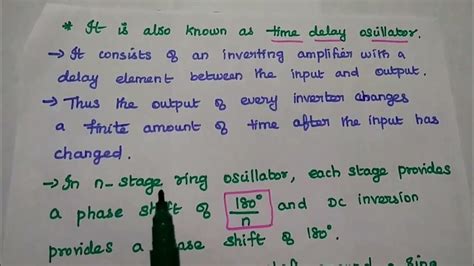 * It is also known as time delay oscillator.
→ It consists of an inverting amplifier with a
delay element between the input and output.
→ Thus the output of every inverter changes
a finite amount of time after the input has
changed.
→ In n-stage ring oscillator, each stage provides
a phase shift of 180°/n and DC inversion
provides a phase shift of 180°.